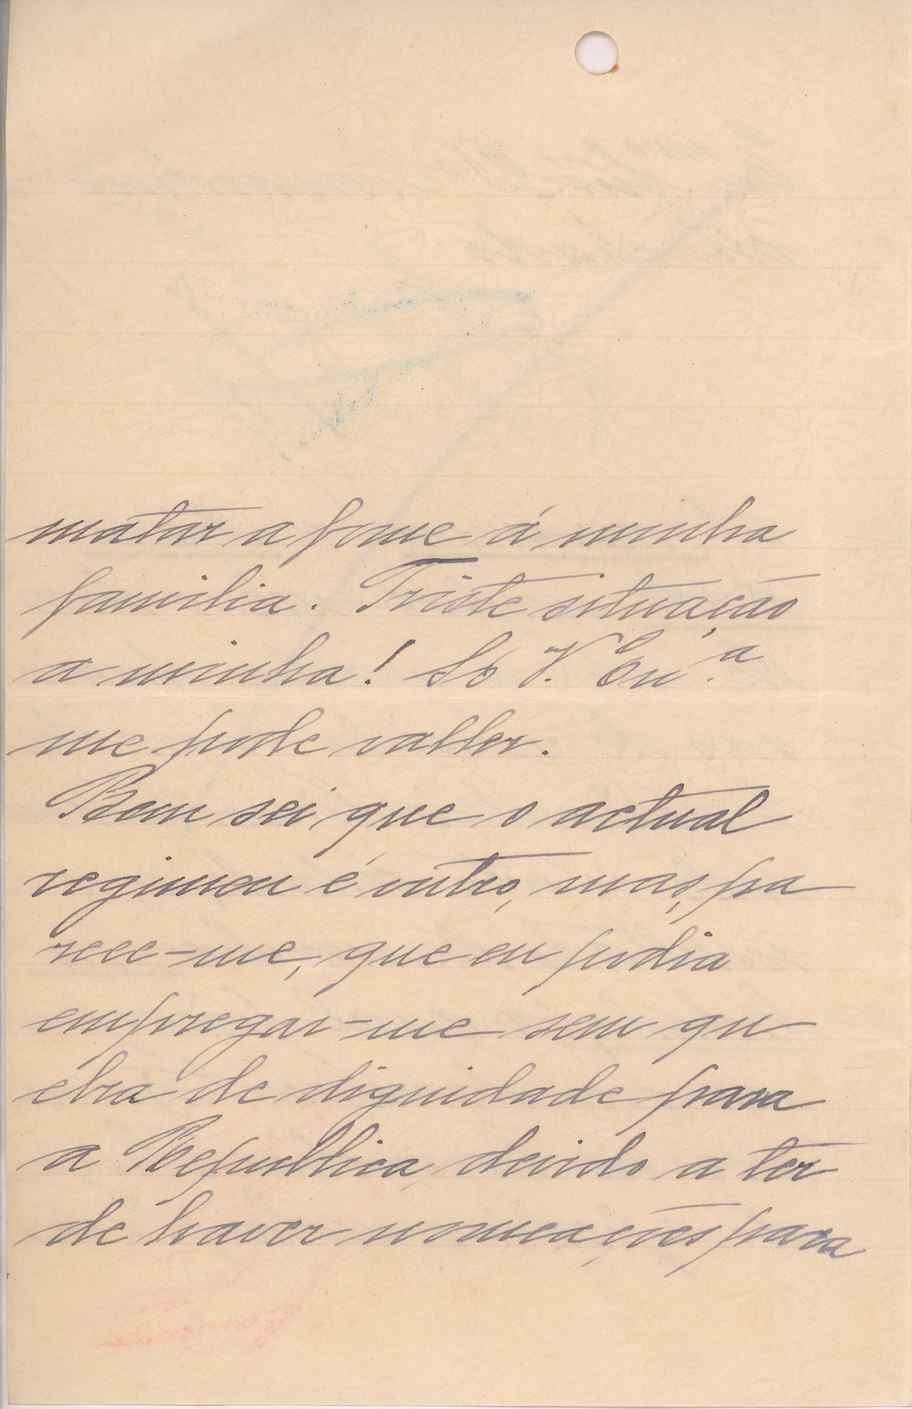 matar a fome á minha
familia. Triste situação
a minha! Só V. Exª.
me pode valler.
Bem sei que o actual
regimen é outro, mas, pa
rece-me, que eu podia
empregar-me sem qu
ebra de dignidade para
a Republica, devido a ter
de haver nomeações para